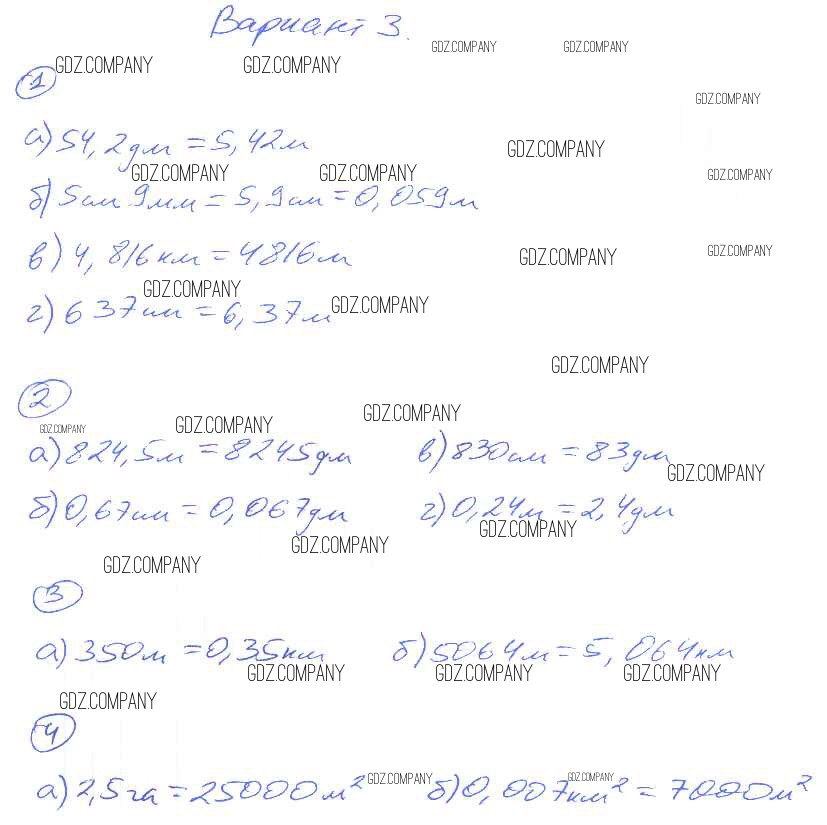 Вариант 3.
GDZ.COMPANY GDZ.COMPANY
GDZ.COMPANY GDZ.COMPANY
1
GDZ.COMPANY
а) 54,2дм = 5,42м
GDZ.COMPANY
GDZ.COMPANY GDZ.COMPANY GDZ.COMPANY
б) 5см 9мм = 5,9см = 0,059м
в) 4,816км = 4816м
GDZ.COMPANY GDZ.COMPANY
GDZ.COMPANY GDZ.COMPANY
г) 637см = 6,37м
GDZ.COMPANY
2
GDZ.COMPANY GDZ.COMPANY GDZ.COMPANY
а) 824,5м = 8245дм в) 830см = 83дм
GDZ.COMPANY
б) 0,67см = 0,067дм г) 0,24м = 2,4дм
GDZ.COMPANY GDZ.COMPANY
GDZ.COMPANY
3
а) 350м = 0,35км б) 5064м = 5,064км
GDZ.COMPANY GDZ.COMPANY GDZ.COMPANY
GDZ.COMPANY
4
а) 2,5га = 25000м² GDZ.COMPANY б) 0,007км² = 7000м²
GDZ.COMPANY